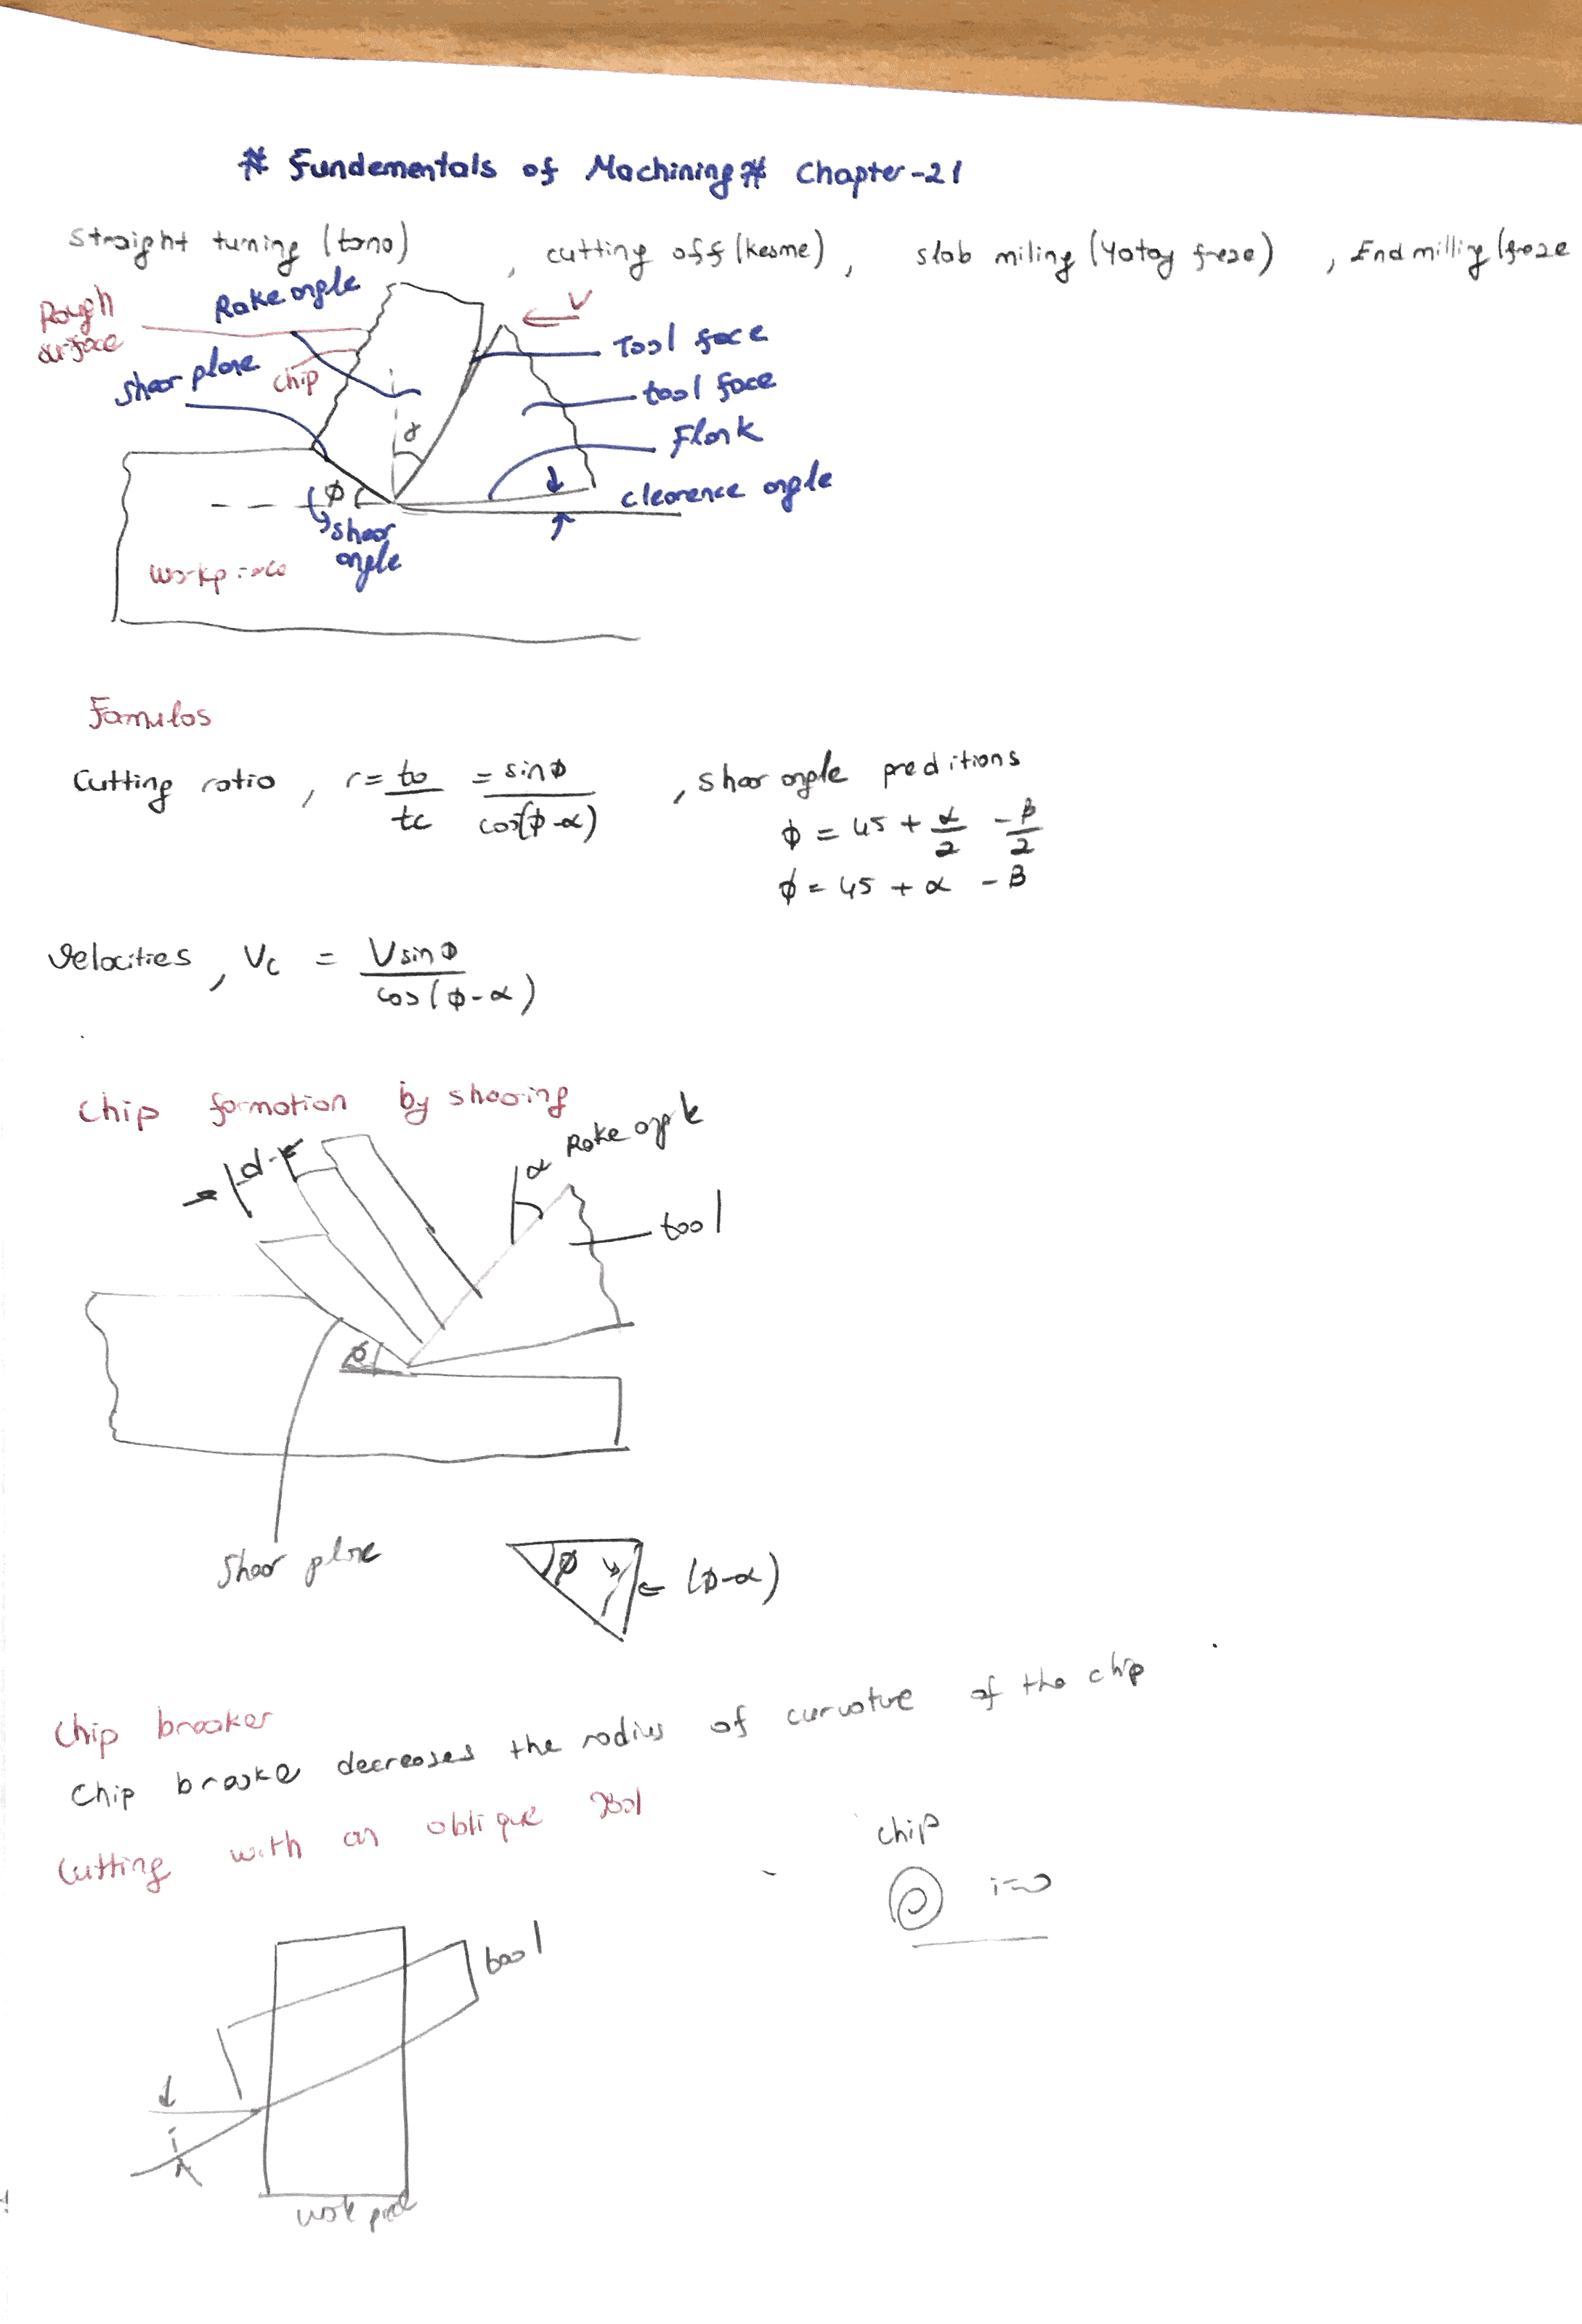 # Fundementals of Machining # Chapter-21
straight turning (torno) , cutting off (kesme) , slab miling (Yatay freze) , End milling (freze
Rake angle
Rough
surface
V
Tool face
shear plane
chip
tool face
Flank
α
clearence angle
Φ
shear
angle
Workpiece
Formulas
Cutting ratio , r = to/tc = sinΦ/cos(Φ-α) , shear angle preditions
Φ = 45 + α/2 - β/2
Φ = 45 + α - β
Velocities , Vc = V sinΦ/cos(Φ-α)
Chip formation by shearing
d
α Rake angle
tool
Φ
Shear plane
Φ (Φ-α)
Chip breaker
Chip breake decreases the radius of curvature of the chip
Cutting with an oblique tool
chip
i=0
tool
i